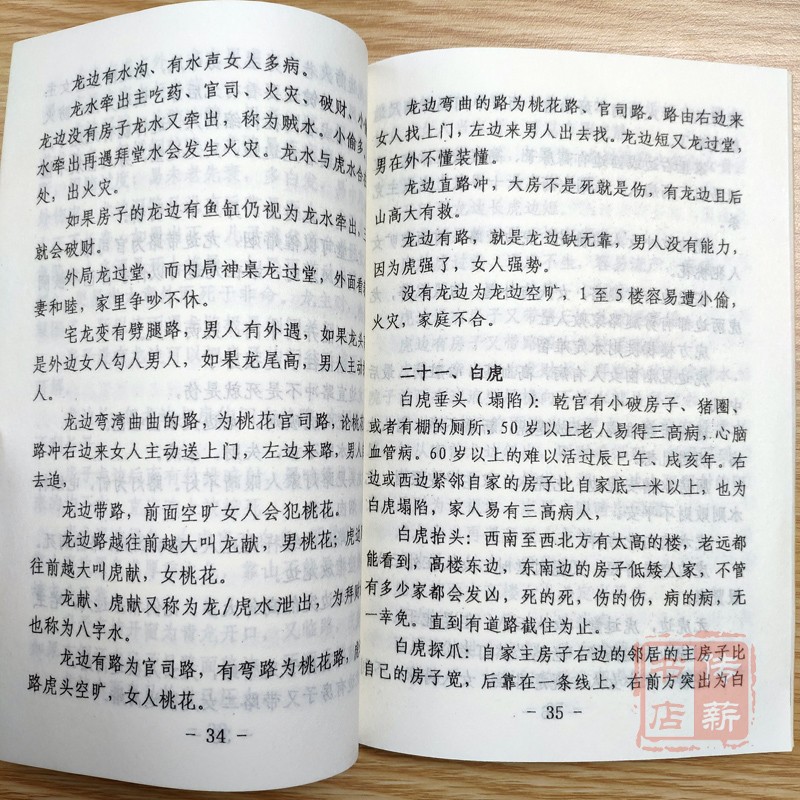 龙边有水沟、有水声女人多病。
龙水牵出主吃药、官司、火灾、破财、小
龙边没有房子龙水又牵出，称为贼水。小偷多
水牵出再遇拜堂水会发生火灾。龙水与虎水合
处，出火灾。
如果房子的龙边有鱼缸仍视为龙水牵出，
就会破财。
外局龙过堂，而内局神桌龙过堂，外面看
妻和睦，家里争吵不休。
宅龙变有劈腿路，男人有外遇，如果龙头
是外边女人勾人男人，如果龙尾高，男人主动
人。
龙边弯湾曲曲的路，为桃花官司路，论桃
路冲右边来女人主动送上门，左边来路，男人
去迫，
龙边带路，前面空旷女人会犯桃花。
龙边路越往前越大叫龙献，男桃花；虎边
往前越大叫虎献，女桃花。
龙献、虎献又称为龙/虎水泄出，为拜
也称为八字水。
龙边有路为官司路，有弯路为桃花路，
路虎头空旷，女人桃花。
- 34 -
龙边弯曲的路为桃花路、官司路。路由右边来
女人找上门，左边来男人出去找。龙边短又龙过堂，
男在外不懂装懂。
龙边直路冲，大房不是死就是伤，有龙边且后
山高大有救。
龙边有路，就是龙边缺无靠，男人没有能力，
因为虎强了，女人强势。
没有龙边为龙边空旷，1 至 5 楼容易遭小偷，
火灾，家庭不合。
二十一、白虎
白虎垂头（塌陷）：乾官有小破房子、猪圈、
或者有棚的厕所，50 岁以上老人易得三高病，心脑
血管病。60 岁以上的难以活过辰巳午、戌亥年。右
边或西边紧邻自家的房子比自家底一米以上，也为
白虎塌陷，家人易有三高病人，
白虎抬头：西南至西北方有太高的楼，老远都
能看到，高楼东边，东南边的房子低矮人家，不管
有多少家都会发凶，死的死，伤的伤，病的病，无
一幸免。直到有道路截住为止。
白虎探爪：自家主房子右边的邻居的主房子比
自己的房子宽，后靠在一条线上，右前方突出为白
- 35 -
店薪